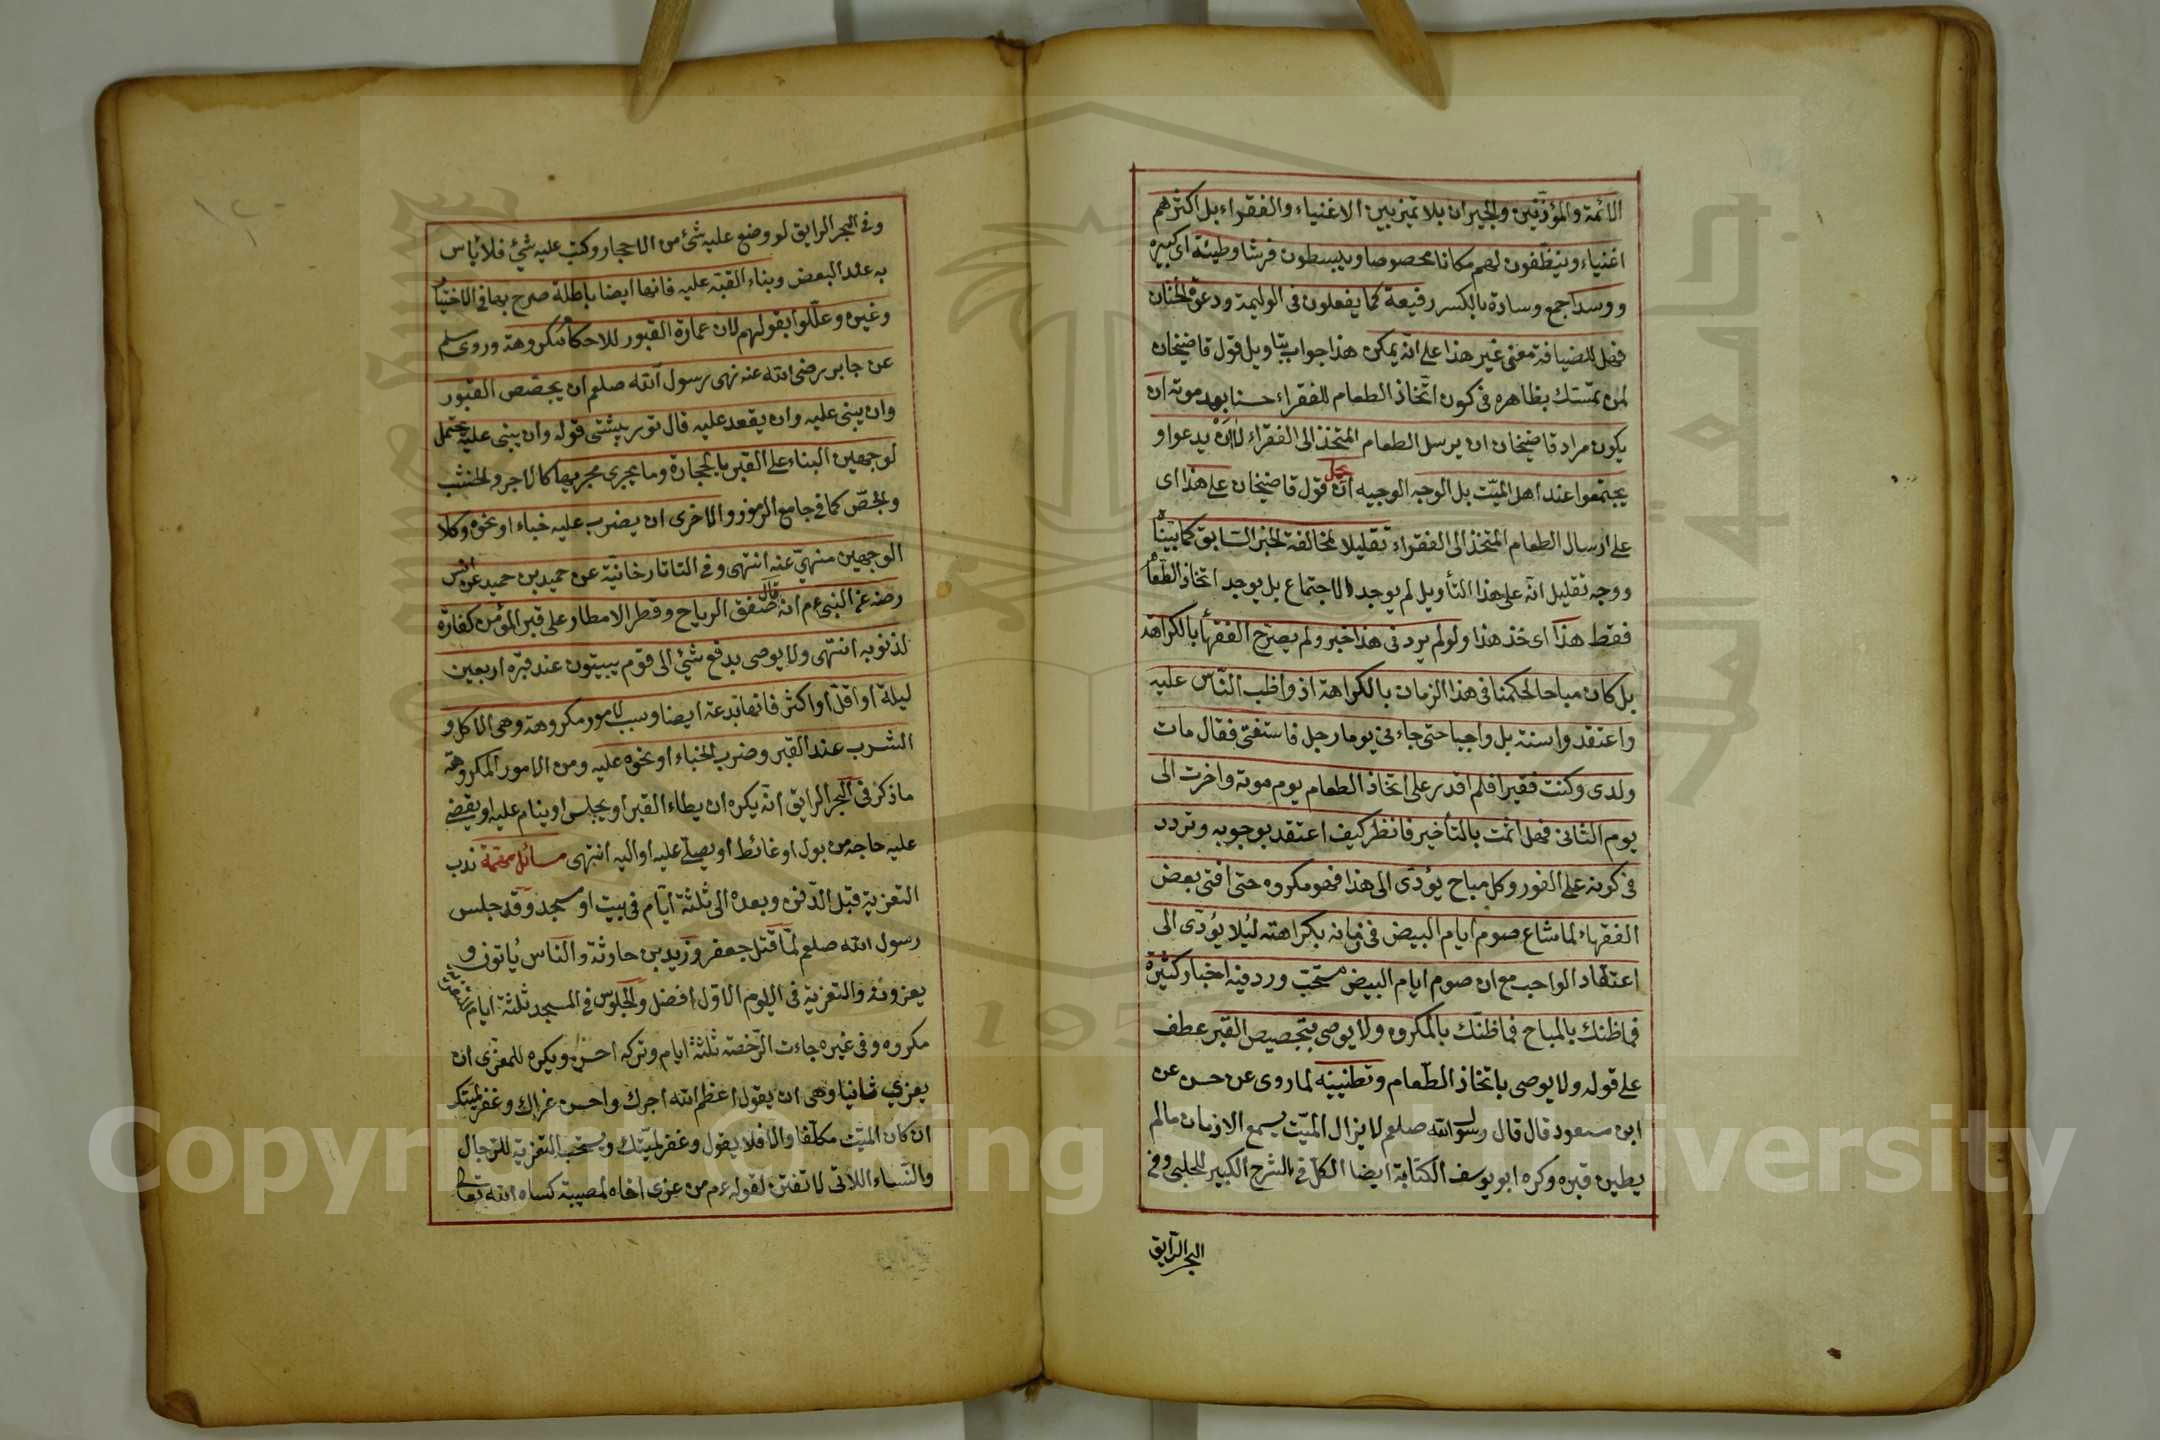 الائمة والمؤذنين والجيران بلا تميز بين الاغنياء والفقراء بل اكثرهم
اغنياء وينظفون لهم مكانا مخصوصا ويبسطون فرشا وطيئة اى كبيرة
ووسدا جمع وسادة بالكسر رفيعة كما يفعلون فى الوليمة ودعوة الختان
فهل للضيافة معنى غير هذا على انه يمكن هذا جواب بتاويل قول قاضيخان
لمن تمسك بظاهره فى كون اتخاذ الطعام للفقراء حسنا بعد موته ان
يكون مراد قاضيخان ان يرسل الطعام المتخذ الى الفقراء لا ان يدعوا و
يجتمعوا عند اهل الميت بل الوجه الوجيه ان يحمل قول قاضيخان على هذا اى
على ارسال الطعام المتخذ الى الفقراء تقليلا لمخالفة الخبر السابق كما بينا
ووجه تقليل انه على هذا التأويل لم يوجد الاجتماع بل يوجد اتخاذ الطعام
فقط هذا اى خذ هذا ولو لم يرد فى هذا خبر ولم يصرح الفقهأ بالكراهة
بل كان مباحا لحكمنا فى هذا الزمان بالكراهة اذ واظب الناس عليه
واعتقدوا سنة بل واجبا حتى جاءنى يوما رجل فاستفتى فقال مات
ولدى وكنت فقيرا فلم اقدر على اتخاذ الطعام يوم موته واخرت الى
يوم الثانى فهل اثمت بالتأخير فانظر كيف اعتقد بوجوبه وتردد
فى كونه على الفور وكل مباح يؤدى الى هذا فهو مكروه حتى افتى بعض
الفقهاء لما شاع صوم ايام البيض فى زمانه بكراهته ليلا يؤدى الى
اعتقاد الواجب مع ان صوم ايام البيض مستحب ورد فيه اخبار كثيرة
فما ظنك بالمباح فما ظنك بالمكروه ولا يوصى بتجصيص القبر عطف
على قوله ولا يوصى باتخاذ الطعام وتطيينه لما روى عن حسن عن
ابن مسعود قال قال رسول الله صلعم لا يزال الميت يسمع الاذان مالم
يطين قبره وكره ابو يوسف الكتابة ايضا الكل فى الشرح الكبير للحلبى وفى
البحر الرايق
وفى البحر الرايق لو وضع عليه شئ من الاحجار وكتب عليه شئ فلا بأس
به عند البعض وبناء القبة عليه فانها ايضا باطلة صرح بها فى الاختيار
وغيره وعللوا بقولهم لان عمارة القبور للاحكام مكروهة وروى مسلم
عن جابر رضى الله عنه نهى رسول الله صلعم ان يجصص القبور
وان يبنى عليه وان يقعد عليه قال توربشتى قوله وان يبنى عليه يحتمل
لوجهين البناء على القبر بالحجارة وما يجرى مجريها كالاجر والخشب
والجص كما فى جامع الرموز والاخرى ان يضرب عليه خباء او نحوه وكلا
الوجهين منهى عنه انتهى وفى التاتارخانية عن حميد بن حميد عن انس
رضه عن النبى عم انه قال صفق الرياح وقطر الامطار على قبر المؤمن كفارة
لذنوبه انتهى ولا يوصى بدفع شئ الى قوم يبيتون عند قبره اربعين
ليلة او اقل او اكثر فانها بدعة ايضا وسبب لامور مكروهة وهى الاكل و
الشرب عند القبر وضرب الخباء او نحوه عليه ومن الامور المكروهة
ما ذكر فى البحر الرايق انه يكره ان يطاء القبر او يجلس او ينام عليه او يقضى
عليه حاجة من بول او غائط او يصلى عليه او اليه انتهى مسائل مهمة ندب
التعزية قبل الدفن وبعده الى ثلثة ايام فى بيت او مسجد وقد جلس
رسول الله صلعم لما قتل جعفر وزيد بن حارثة والناس يأتون و
يعزونه والتعزية فى اليوم الاول افضل والجلوس فى المسجد ثلثة ايام للتعزية
مكروه وفى غيره جاءت الرخصة ثلثة ايام وتركه احسن ويكره للمعزى ان
يعزى ثانيا وهى ان يقول اعظم الله اجرك واحسن عزاك وغفر لميتك
ان كان الميت مكلفا والا فلا يقول وغفر لميتك ويستحب التعزية للرجال
والنساء اللاتى لا تفتن لقوله عم من عزى اخاه لمصيبة كساه الله تعالى
Copyright © King University
195